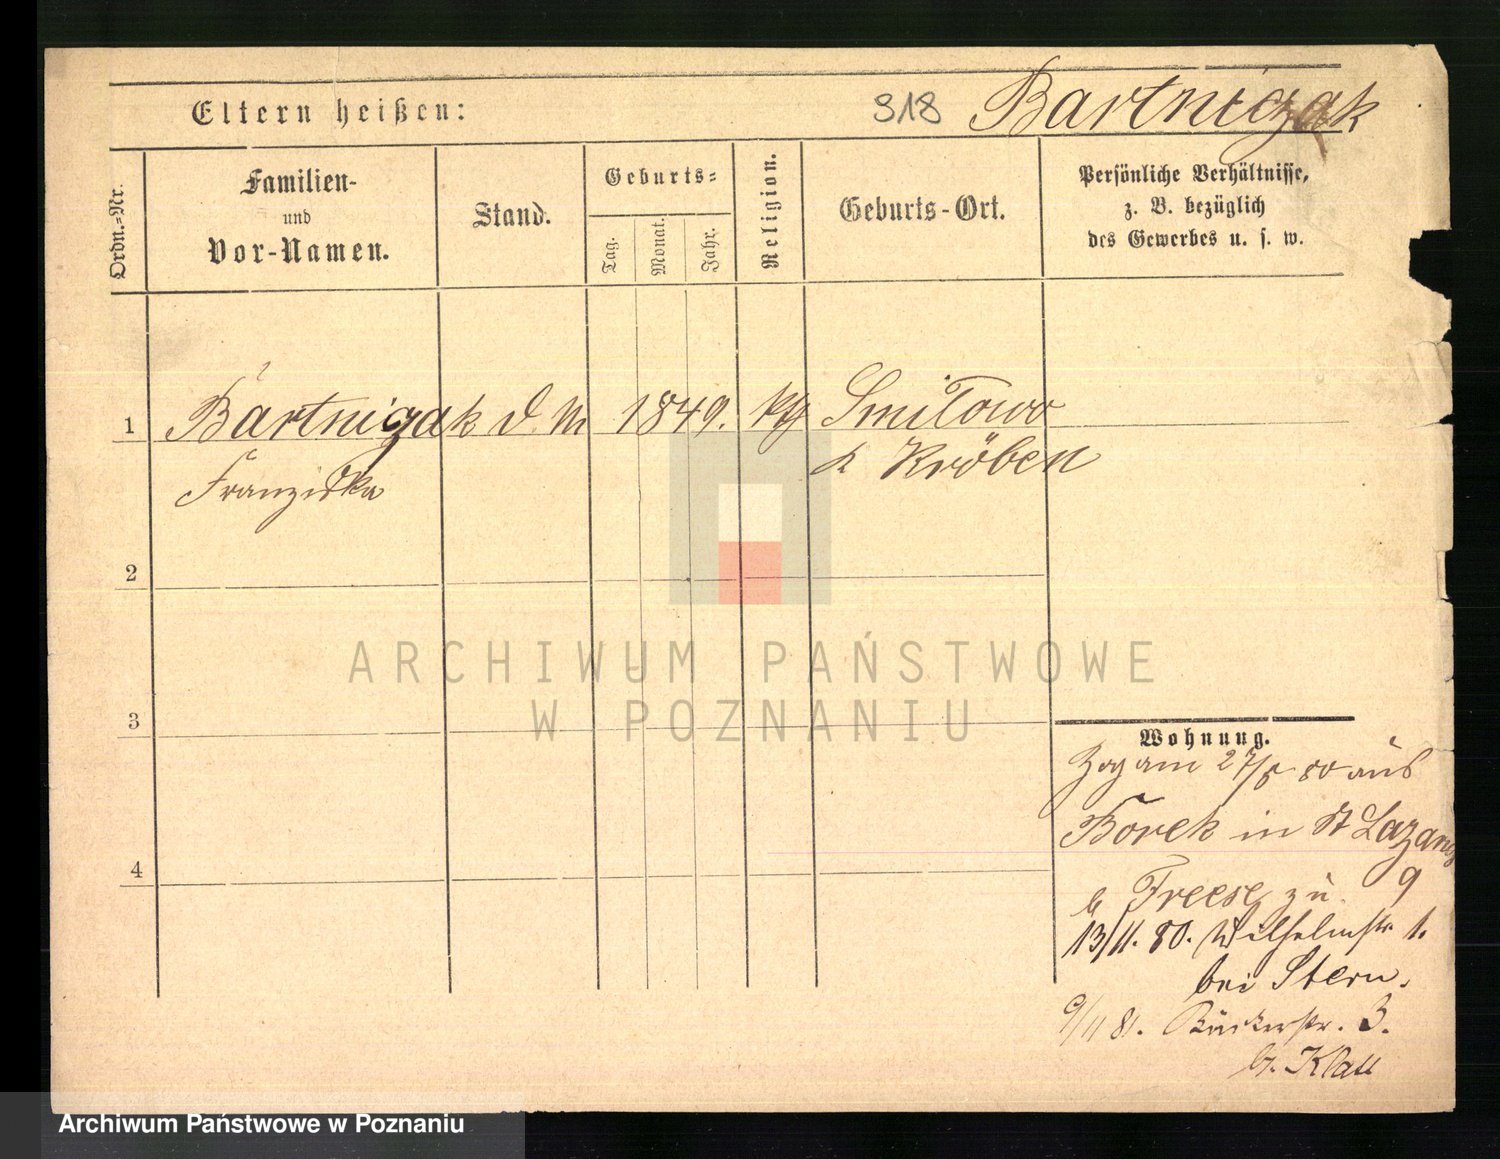 Eltern heißen:
318 Bartniczak
Ordn.-Nr.
Familien-
und
Vor-Namen.
Stand.
Geburts-
Tag.
Monat.
Jahr.
Religion.
Geburts-Ort.
Persönliche Verhältnisse,
z. B. bezüglich
des Gewerbes u. s. w.
1 Bartnizak d. M 1849. kth Smilowo
Franziska
b Kröben
2
3
4
ARCHIWUM PAŃSTWOWE
W POZNANIU
Wohnung.
Zog am 27/5 80 aus
Borek in St Lazarus
b Freese zu 9
13/11. 80. Wilhelmstr. 1.
bei Stern.
9/11 81. Bäckerstr. 3.
b. Klatt
Archiwum Państwowe w Poznaniu